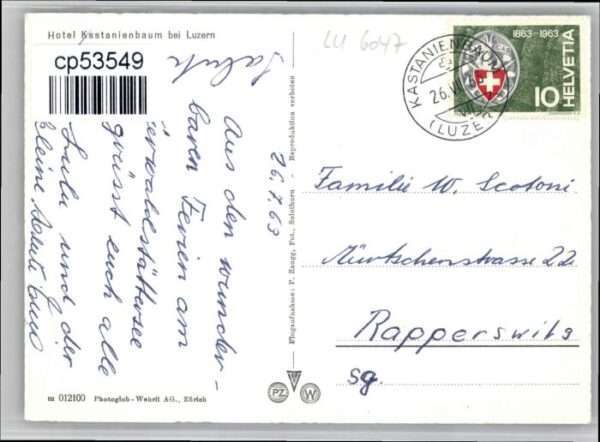 Hotel Kastanienbaum bei Luzern
cp53549
LU 6047
KASTANIENBAUM
26.VII.63
(LUZERN)
1863-1963
HELVETIA
10
Salute
26.7.63
Aus den wunder-
baren Ferien am
Vierwaldstättersee
grüsst euch alle
Lulu und der
kleine
Familie W. Scotoni
Mürtschenstrasse 22
Rapperswil
SG.
Flugaufnahme: P. Zaugg, Fot., Solothurn Reproduktion verboten
m 012100 Photoglob-Wehrli AG., Zürich
PZ W